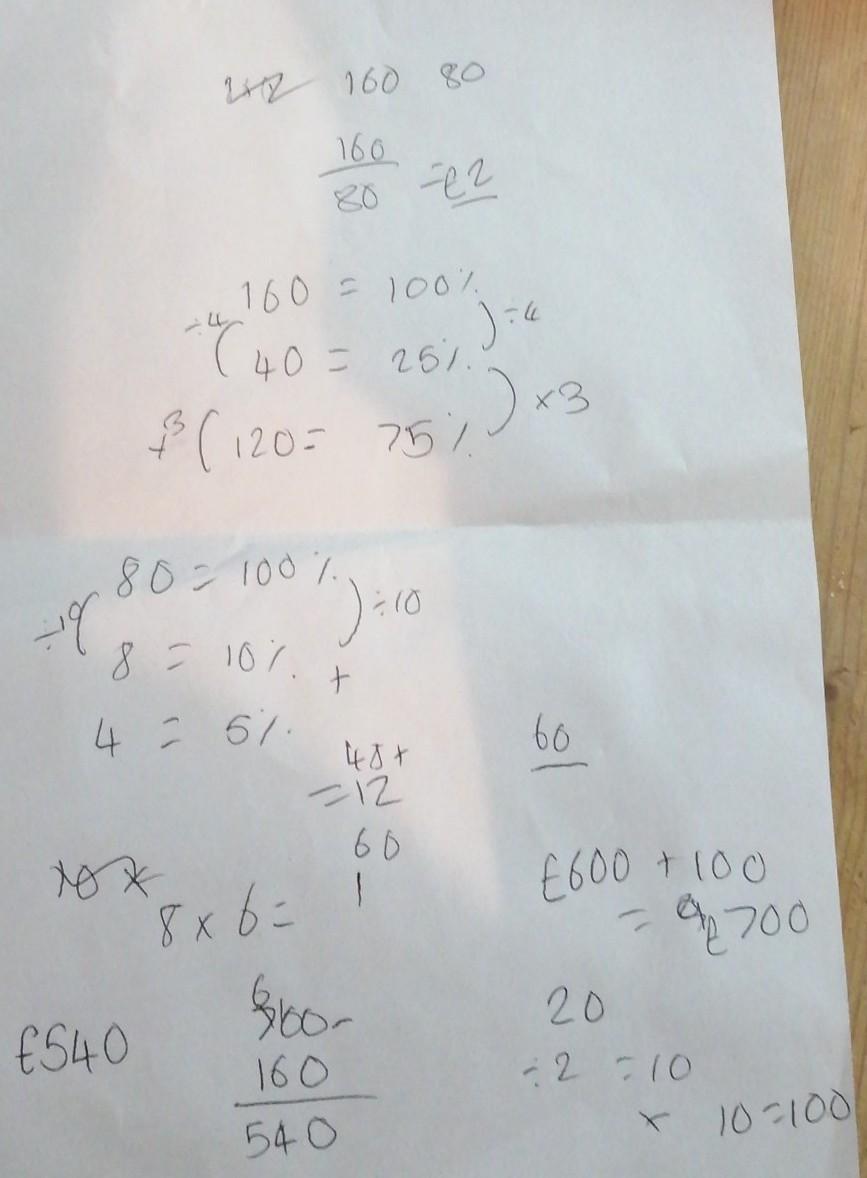 160 80
160
80 = £2
160 = 100%
÷4 ( ) ÷4
40 = 25%
) ×3
×3 ( 120 = 75%
80 = 100%
÷10 ( ) ÷10
8 = 10% +
4 = 5%
48+
=12
60
60
8 × 6 =
£600 + 100
= £700
£540
60-
160
540
20
÷2 = 10
× 10=100